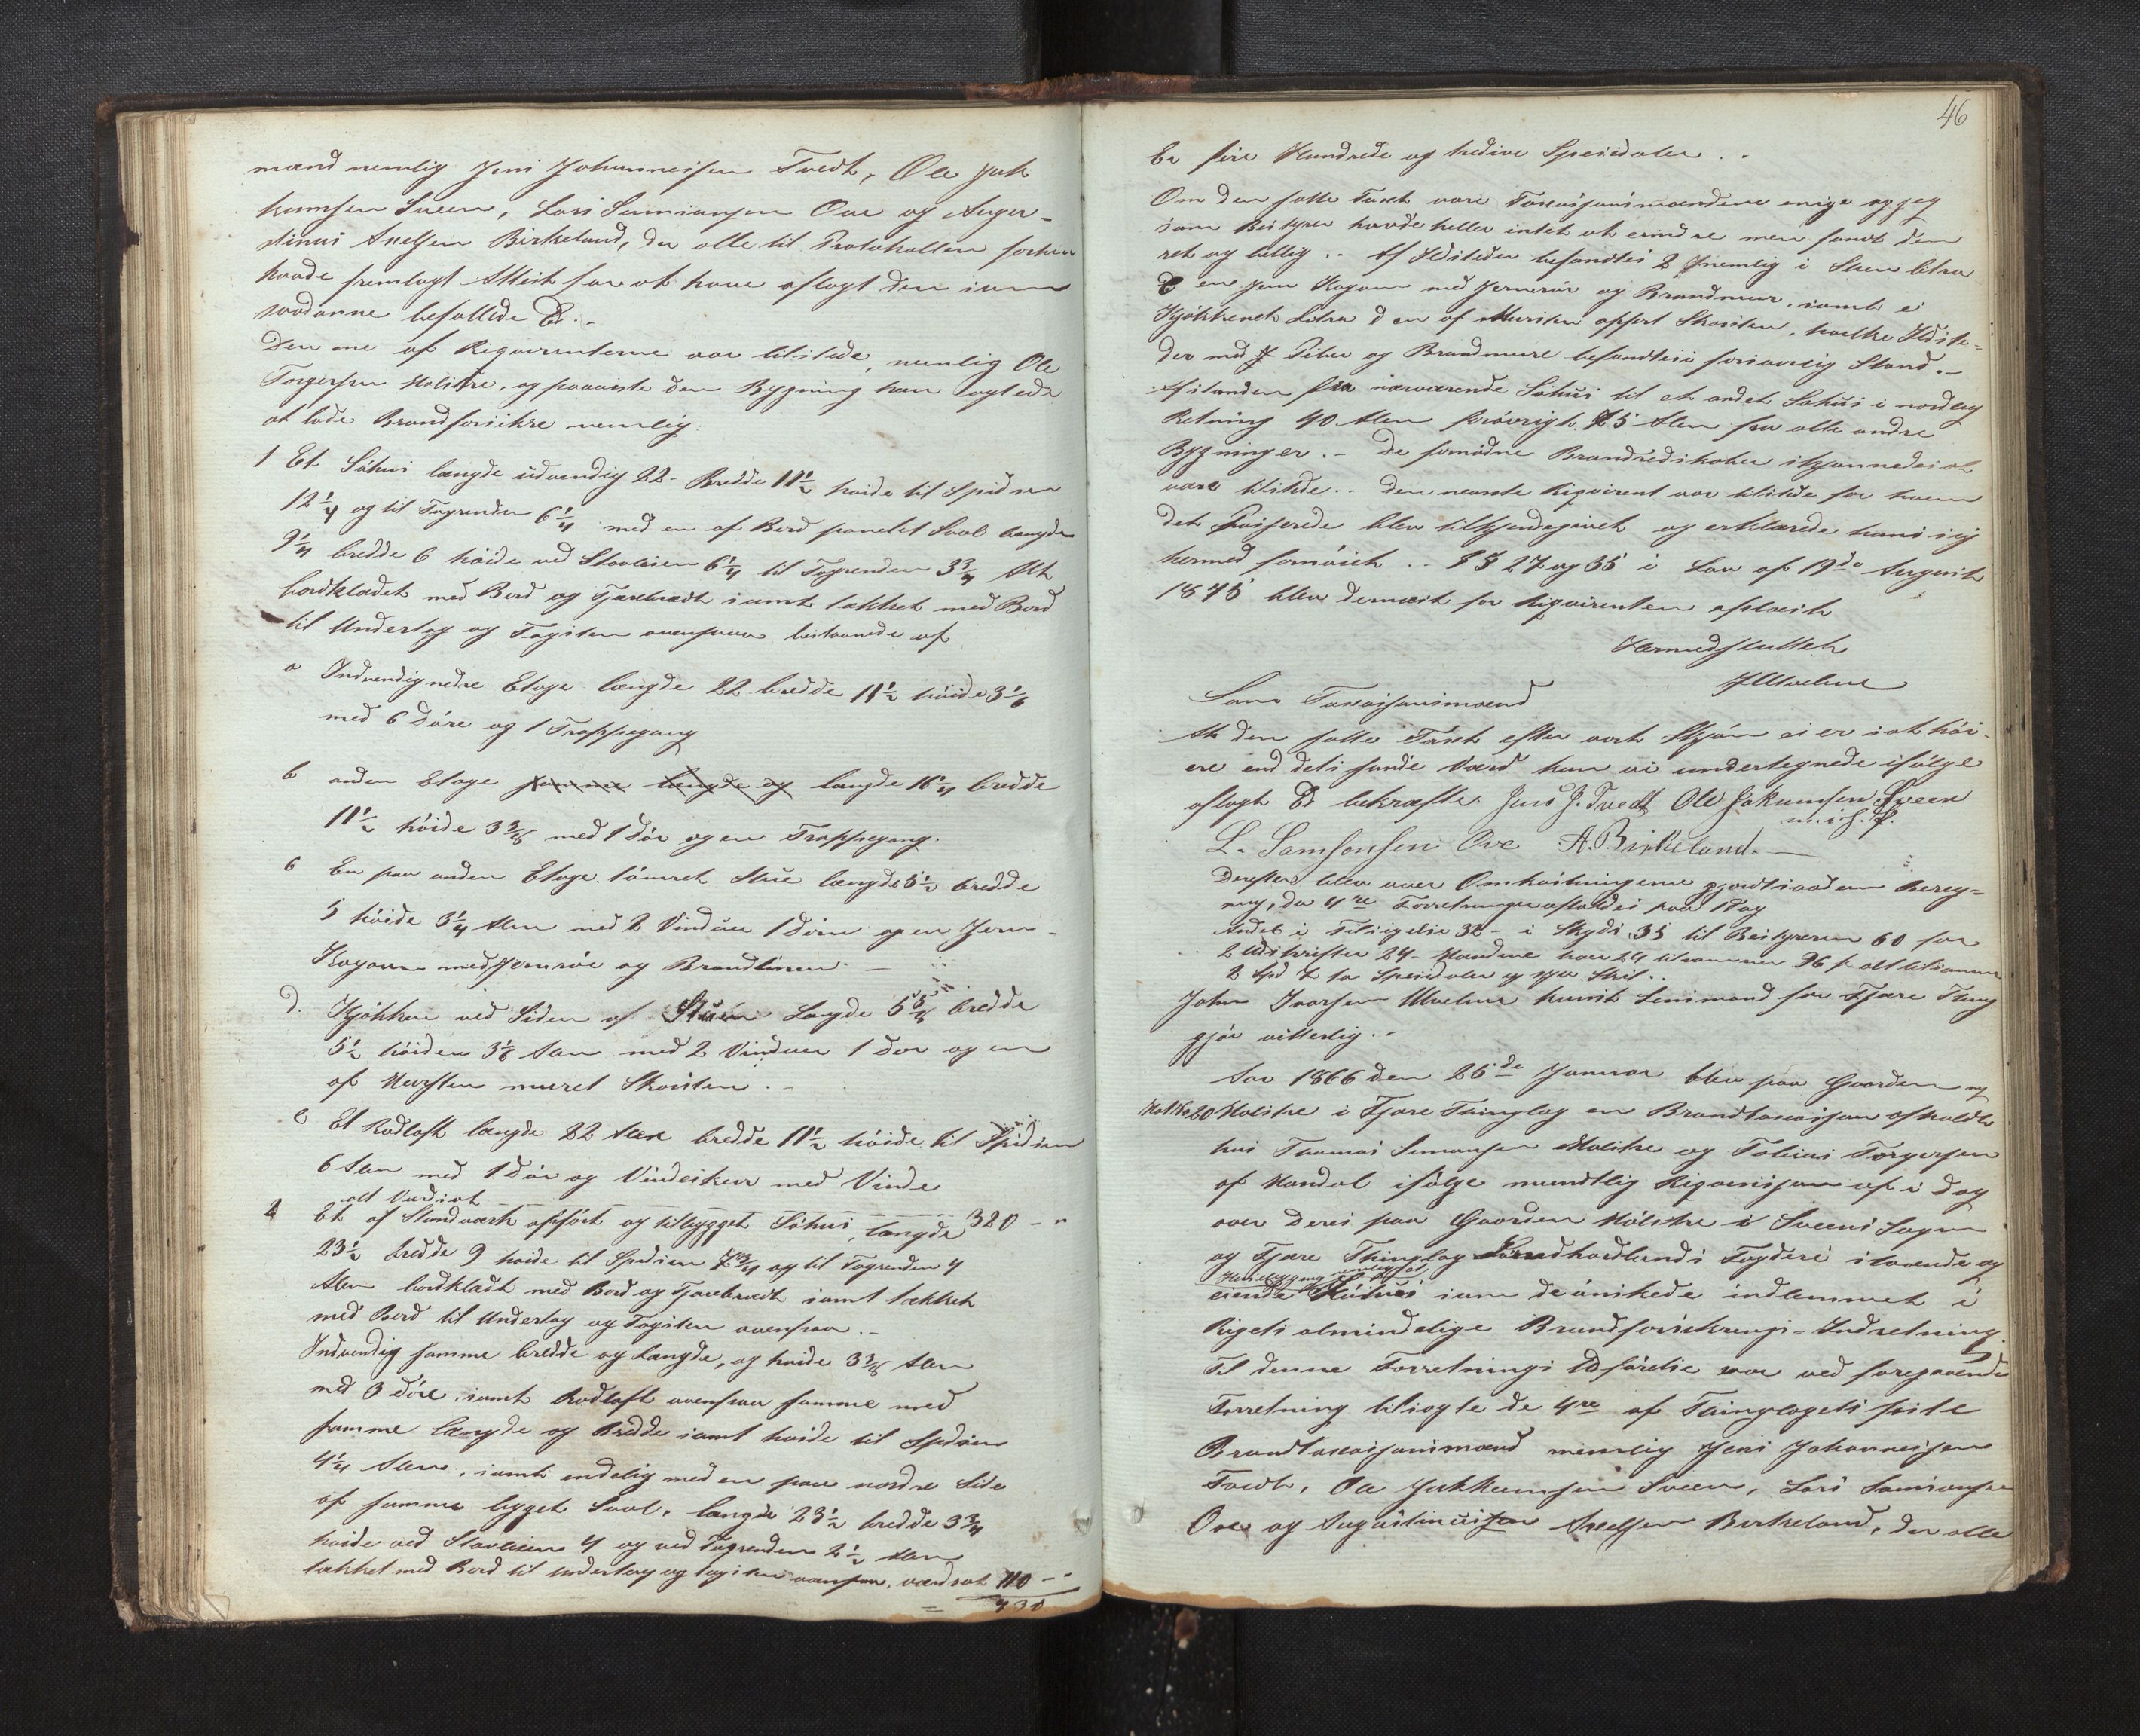 mænd nemlig Jens Johannesen Tvedt, Ole Jok
kumsen Sveen, Lars Samsonsen Ove og Augu-
stinus Axelsen Birkeland, der alle til Protokollen forhen
havde fremlagt Attest for at have aflagt den som
saadanne befallede Ed.-
Den ene af Reqvirenterne var tilstede, nemlig Ole
Torgersen Holstre, og paaviste den Bygning han agtede
at lade Brandforsikre nemlig:
1 Et Söhus længde udvendig 22- Bredde 11½ höide til Spidsen
12¼ og til Tagrenden 6¼ med en af Bord panelet Sval længde
9¼ bredde 6 höide ved Stavlinien 6¼ til Tagrenden 3¾ Alt
bordklædet med Bord og Tjærebrædt samt tækket med Bord
til Undertag og Tagsten ovenpaa bestaaende af
a Indvendig nedre Etage længde 22 bredde 11½ höide 3⅙
med 6 Döre og 1 Trappegang
b anden Etage samme længde og længde 16¼ bredde
11½ höide 3 med 1 Dör og en Trappegang.
c En paa anden Etage tömret Stue længde 5½ bredde
5 höide 3¼ Alen med 2 Vinduer 1 Dörn og en Jern-
Kogovn med Jernrör og Brandmur. -
d. Kjökken ved Siden af Stuen Længde 5 bredde
5½ höiden 3⅙ Alen med 2 Vinduer 1 Dör og en
af Mursten muret Skorsten. -
e Et Rodloft længde 22 Alen bredde 11½ höide til Spidsen
6 Alen med 1 Dör og Vindeskur med Vinde
alt Værdsat 320 - "
2 Et af Standværk opfört og tilbygget Söhus, længde
23½ bredde 9 höide til Spidsen 7¾ og til Tagrenden 4
Alen bordklædt med Bord og Tjærebrædt samt tækket
med Bord til Undertag og Tagsten ovenpaa. -
Indvendig samme bredde og Længde, og höide 3 Alen
med 3 Döre, samt Rodloft ovenpaa samme med
samme Længde og Bredde samt höide til Spidsen
4¼ Alen, samt endelig med en paa nordre Side
af samme bygget Sval, længde 23½ bredde 3¾
höide ved Stavlinien 4 og ved Tagrenden 2½ Alen
tækket med Bord til undertag og tagsten ovenpaa, værdsat 110 - "
= 430
46
Er fire Hundrede og tredive Speciedaler. .
Om den satte Taxt vare Taxasjonsmændene enige og jeg
som Bestyrer havde heller intet at erindre men fandt den
ret og billig. . Af Ildsteder befandtes 2 nemlig i Stuen litra
C en Jern Kogovn med Jernrör og Brandmur, samt i
Kjökkenet Litra d en af Mursten opfört Skorsten, hvilke Ildste-
der med Piber og Brandmure befandtes i forsvarlig Stand. -
Afstanden fra nærværende Söhus til et andet Söhus i nordlig
Retning 40 Alen forövrigt 75 Alen fra alle andre
Bygninger. - De fornödne Brandredskaber skjønnedes at
være tilstede. . Den nævnte Reqvirent var tilstede for hvem
det Passerede blev tilkjendegivet og erklærede han sig
hermed fornöiet. . §§ 27 og 35 i Lov af 19de August
1845 blev dernæst for Reqvirenten oplæst
Hermed sluttet
J Utvehne
Som Taxasjonsmænd
At den satte Taxt efter vort Skjön ei er sat höi-
ere end dets sande Værd kan vi undertegnede ifölge
aflagt Ed bekræfte. Jens J. Tvedt Ole Jokumsen Sveen
m. i. h. P.
L. Samsonsen Ove A. Birkeland. -
Derefter blev over Omkostningerne gjordt saadan Bereg-
ning, da 4re Forretninger afholdes paa 1 Dag
Andel i Tilsigelse 32 - i Skyds 35 til Bestyreren 60 for
2 Udskrifter 24 - Mændene hver 24 tilsammen 96 s. alt tilsammen
2 Spd 7 to Speciedaler og syv Skil. .
John Ivarsen Utvehne konst Lensmand for Fjære Thing
gjör vitterlig. -
Aar 1866 den 26de Januar blev paa Gaarden
Holstre i Fjære Thinglag en Brandtaxasjon afholdt
hos Thomas Simonsen Holstre og Tobias Torgersen
af Mandal ifölge mundtlig Reqvisisjon af i dag
over Deres paa Gaarden Holstre i Sveens Sogn
og Fjære Thinglag Söndhordlands Fogderi staaende og
Husebygning nemlig et
eiende Söhus som de önskede indlemmet i
Rigets almindelige Brandforsikrings-Indretning.
Til denne Forretnings Udförelse var ved foregaaende
Forretning tilsagte de 4re af Thinglagets faste
Brandtaxasjonsmænd nemlig Jens Johannesen
Tvedt, Ole Jokkumsen Sveen, Lars Samsonsen
Ove og Augustinus Axelsen Birkeland, der alle